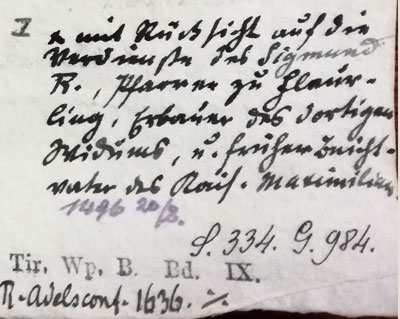 I x mit Rücksicht auf die
Verdienste des Sigmund
R., Pfarrer zu Flaur-
ling, Erbauer des dortigen
Widums, u. früher Beicht-
vater des Kais. Maximilian
1496 20/8.
S. 334. G. 984.
Tir. Wp. B. Bd. IX.
R. Adelsconf. 1636. ./.